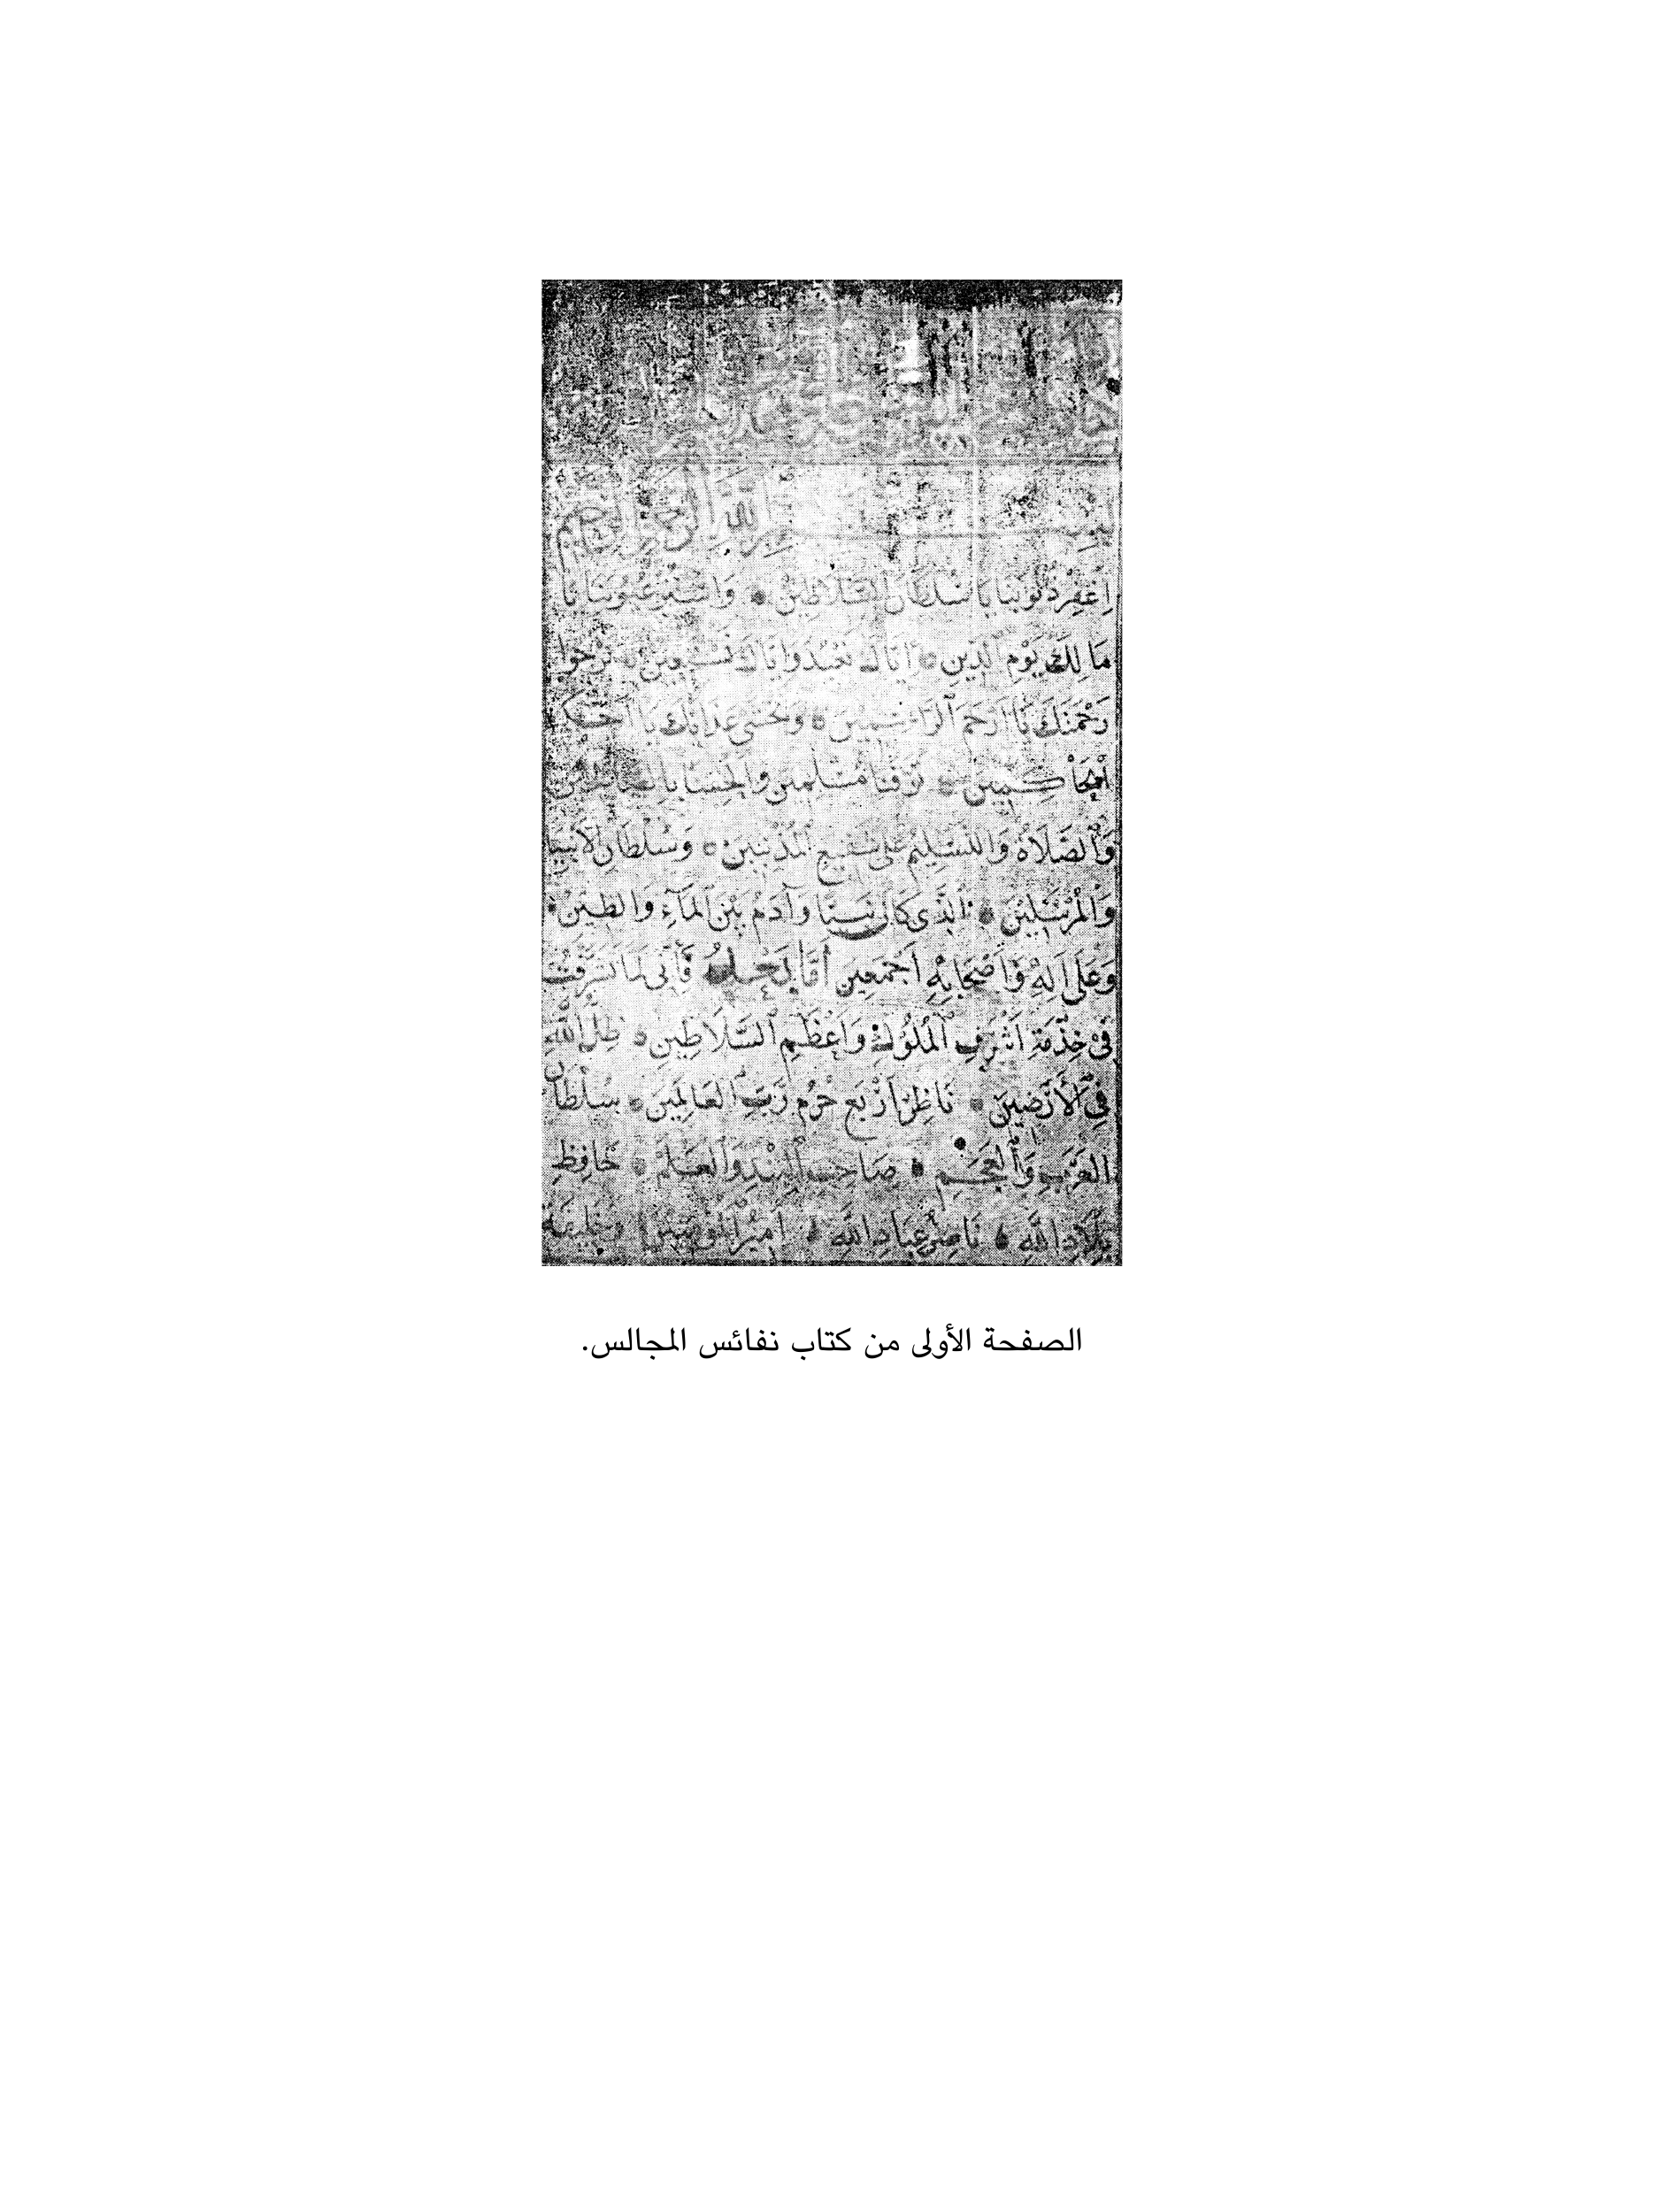 بسم الله الرحمن الرحيم
اِغْفِرْ ذُنُوبَنَا يَا سُلْطَانَ السَّلَاطِيْنِ وَاسْتُرْ عُيُوبَنَا يَا
مَالِكَ يَوْمِ الدِّيْنِ اِيَّاكَ نَعْبُدُ وَاِيَّاكَ نَسْتَعِيْنُ نَرْجُوا
رَحْمَتَكَ يَا اَرْحَمَ الرَّاحِمِيْنَ وَنَخْشَى عَذَابَكَ يَا اَحْكَمَ
الْحَاكِمِيْنَ تَوَفَّنَا مُسْلِمِيْنَ وَالْحِقْنَا
وَالصَّلَاةُ وَالتَّسْلِيْمُ عَلَى شَفِيْعِ الْمُذْنِبِيْنَ وَسُلْطَانِ الْاَنْبِيَا
وَالْمُرْسَلِيْنَ اَلَّذِى كَانَ نَبِيًّا وَآدَمُ بَيْنَ الْمَآءِ وَالطِّيْنِ
وَعَلَى اَلِهِ وَاَصْحَابِهِ اَجْمَعِيْنَ اَمَّا بَعْدُ فَاِنِّى لَمَّا تَشَرَّفْتُ
فِىْ خِدْمَةِ اَشْرَفِ الْمُلُوْكِ وَاَعْظَمِ السَّلَاطِيْنِ ظِلُّ اللهِ
فِى الْاَرَضِيْنَ نَاظِرُ اَرْبَعِ حَرُمِ رَبِّ الْعَالَمِيْنَ سُلْطَانِ
الْعَرَبِ وَالْعَجَمِ صَاحِبِ الْبَنْدِ وَالْعَلَمِ حَافِظِ
بِلَادِ اللهِ نَاصِرُ عِبَادِ اللهِ اَمِيْرُ الْمُؤْمِنِيْنَ وَخَلِيْفَةُ
الصفحة الأولى من كتاب نفائس المجالس.